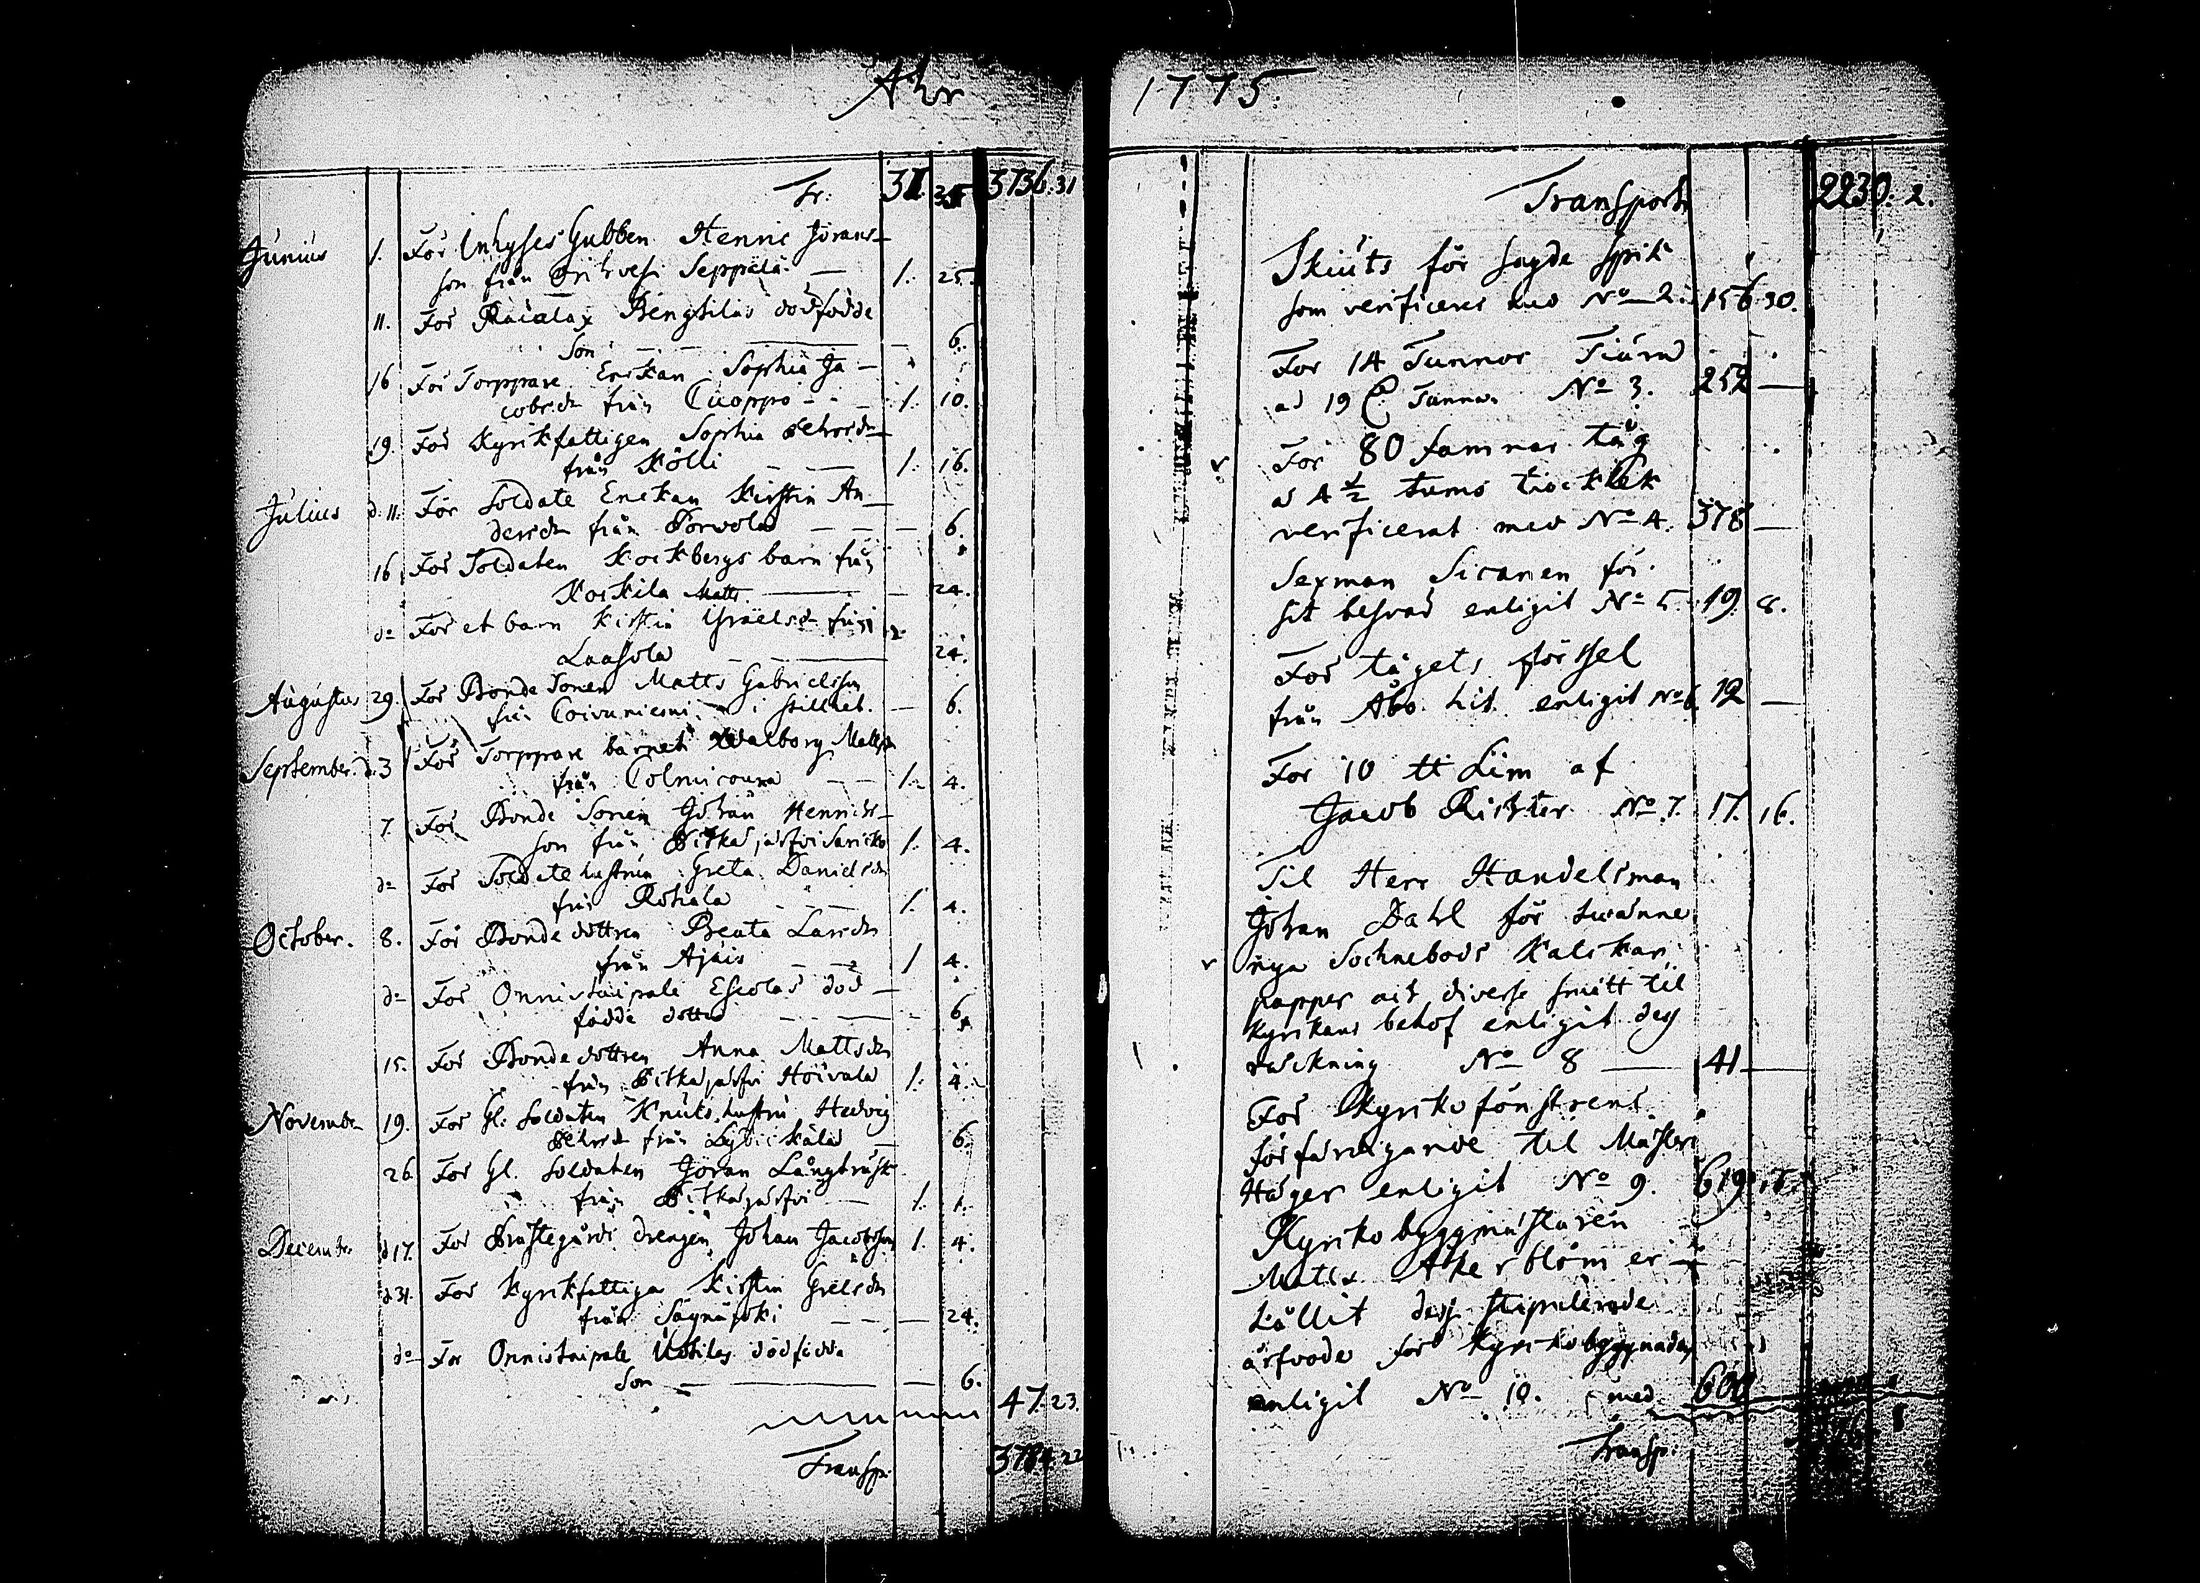 Åhr
Tr. 3736.31
Junius 1. För Inhyses Gubben Henric Jörans-
son från Orihvesi Seppälä — 1. 25.
11. För Raialax Bengtilas dödfödde
Son — — — 6.
16 För Torppare Enckan Sophia Ja-
cobsdr från Cuoppo — 1. 10.
19. För Kyrkfattigen Sophia
från Kölli — 1. 16.
Julius d. 11. För Soldate Enckan Kirstin An-
dersdr från Porvola — — 6.
16 För Soldaten Kockbergs barn från
Korkila Matts — — 24.
do För et barn Kirstin Israelsdr från
Laasola — 24.
Augustus 29. För Bonde Sonen Matts Gabrielsson
från Coivuniemi i stillhet. — 6.
September d. 3 För Torppare barnet Walborg Mattsdr
från Colmicoura — 1. 4.
7. För Bonde Sonen Johan Henrics-
son från Pitkäjärfvi 1. 4.
do För Soldate hustrun Greta Danielsdr
från Rohala — 1. 4.
October. 8. För Bonde dottren Beata Larsdr
från Ajais — 1 4.
do För Onnistaipale Escolas död-
födde dotter — 6.
15. För Bonde dottren Anna Mattsdr
från Pitkäjärfvi Hoivala 1. 4.
November 19. För Gl. Soldaten Knuts hustru Hedvig
från — 6.
26 För Gl. Soldaten Jöran Långtrusk
från Pitkäjärfvi — 1. 1.
December d 17. För Prästegårds drengen Johan Jacobsson 1. 4.
d 31. För Kyrkfattiga Kirstin Grelsdr
från — — 24.
do För Onnistaipale Uotilas dödfödde
Son — — — 6.
47. 23.
Transp. 3784. 22
1775.
Transport 2230. 2.
Skiuts för sagde spik
som verificeres med No 2. 156 30.
För 14 Tunnor Tiära
ad 19 Tunnan No 3. 252 —
För 80 famnar tåg
a 4 1/2 tums tiocklek
verificerat med No 4. 378 —
Sexman Sicanen för
sit besvär enligit No 5. 19. 8.
För tågets förssel
från Åbo hit enligit No 6 12 —
För 10 tt Lim af
Jacob Richter No 7. 17. 16.
Til Herr Handelsman
Johan Dahl för tvänne
nya Sochnebods Kalckar,
papper och diverse smått til
kyrkans behof enligit dess
räckning No 8 — 41 —
För Kyrkofönstrens
förfärdigande til Mäster
Häger enligit No 9. 619.
Kyrko byggmästaren
Matts Åkerblom er-
hållit dess stipulerade
arfvode för kyrkobyggnaden
enligit No 10. med 600
Transp.